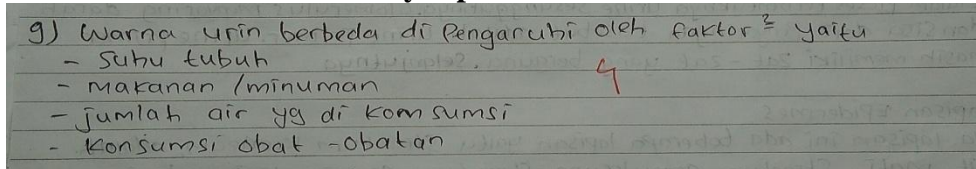 9) Warna urin berbeda di Pengaruhi oleh faktor² yaitu
- Suhu tubuh
- Makanan / minuman
4
- jumlah air yg di komsumsi
- Konsumsi obat - obatan